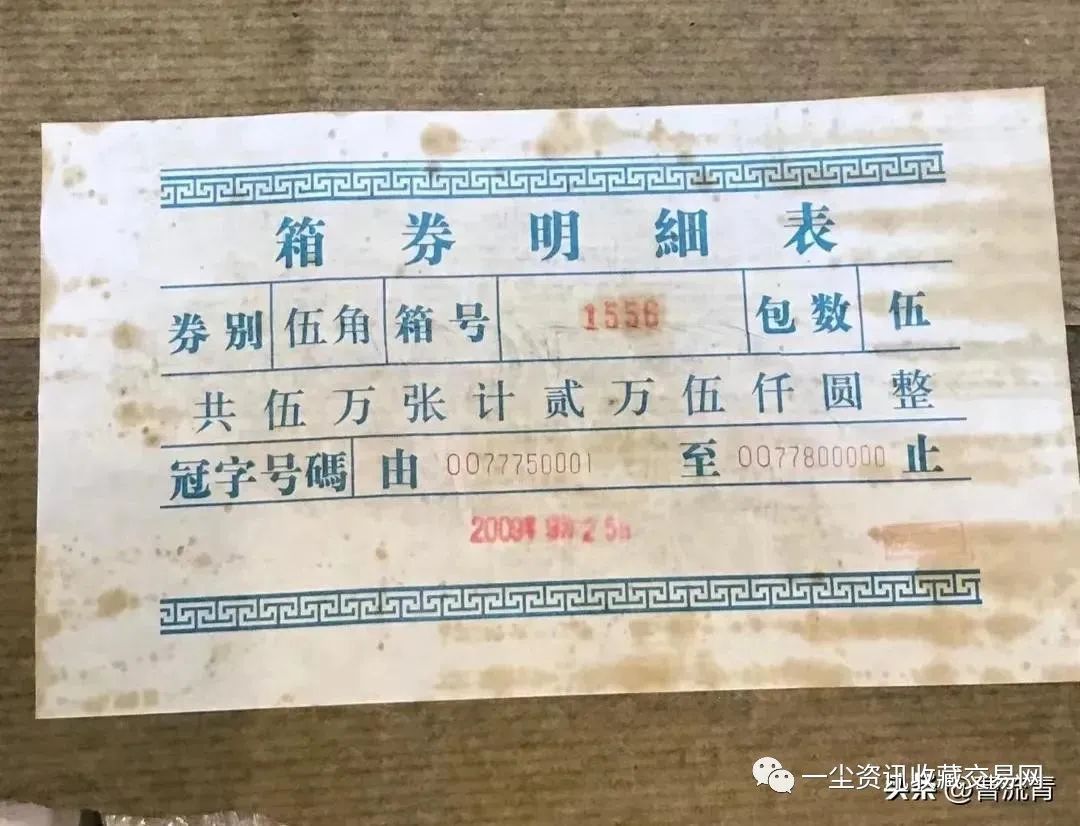 箱券明細表
券别 伍角 箱号 1556 包数 伍
共伍万张计贰万伍仟圆整
冠字号碼 由 0077750001 至 0077800000 止
2009年 9月25日
一尘资讯收藏交易网
头条 @曹流青